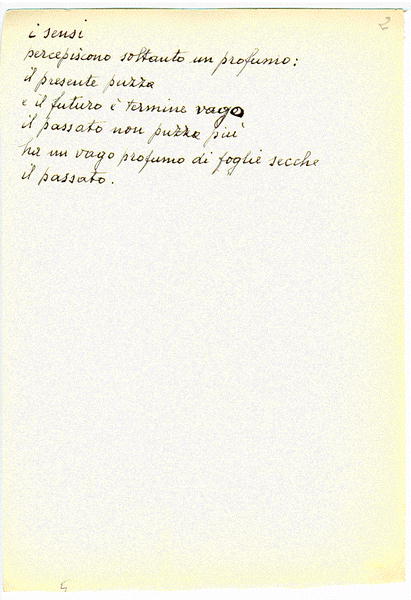 2
i sensi
percepiscono soltanto un profumo:
il presente puzza
e il futuro è termine vago
il passato non puzza più
ha un vago profumo di foglie secche
il passato.